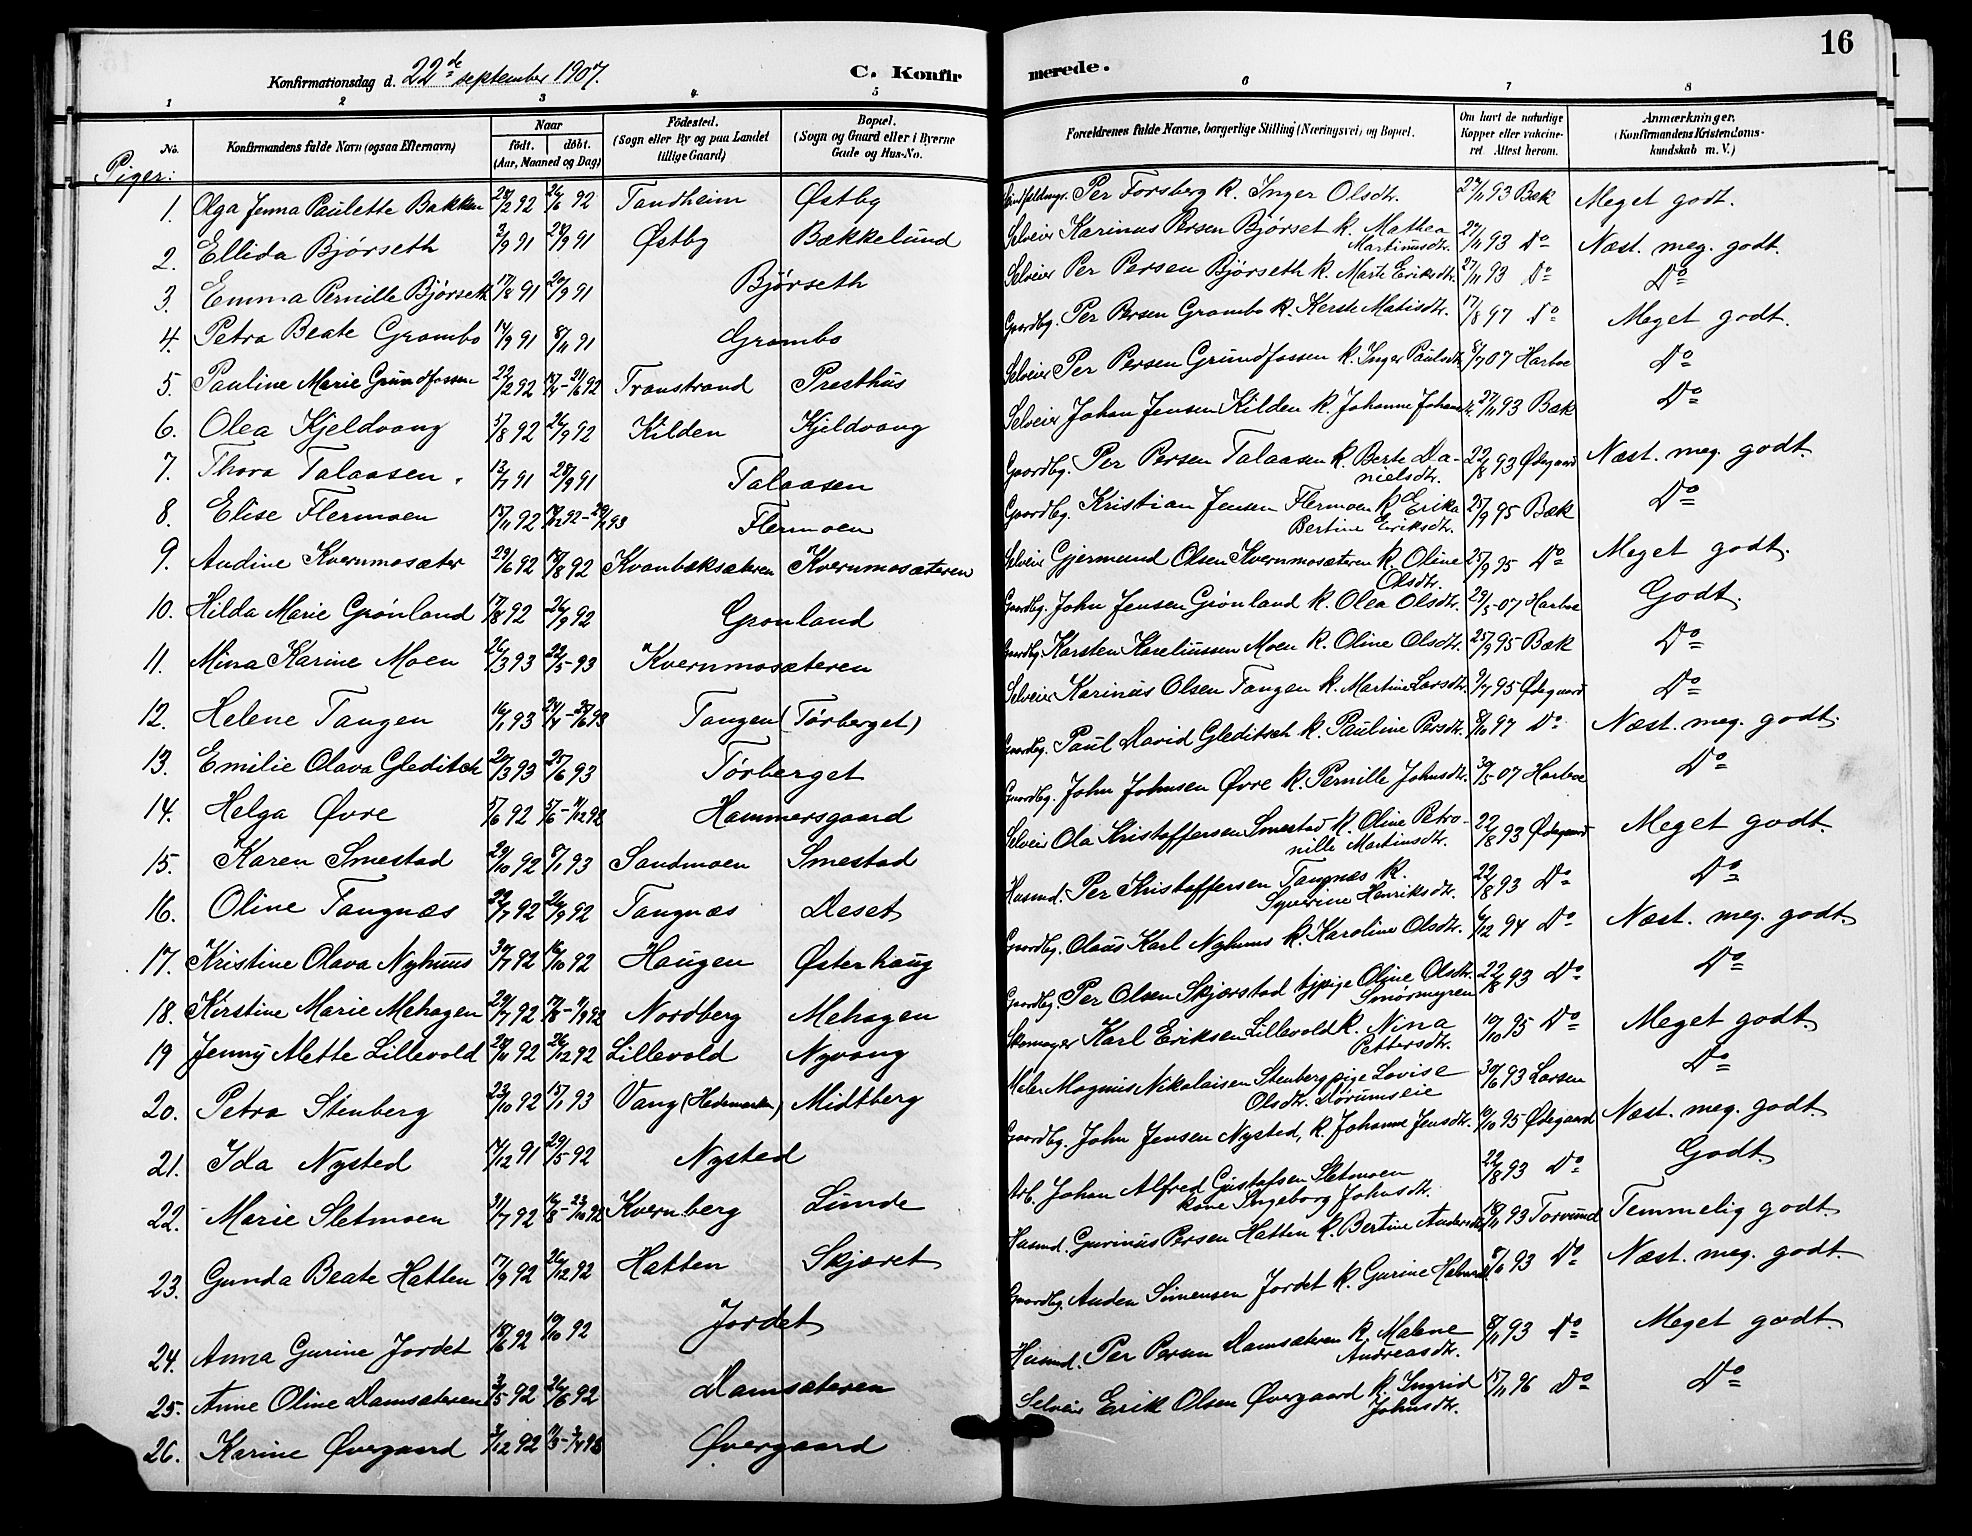 16
Konfirmationsdag d. 22de september 1907.
C. Konfirmerede.
1 2 3 4 5 6 7 8
No.
Konfirmandens fulde Navn (ogsaa Efternavn)
Naar
født. døbt.
(Aar, Maaned og Dag)
Födested.
(Sogn eller By og paa Landet
tillige Gaard)
Bopæl.
(Sogn og Gaard eller i Byerne
Gade og Hus-No.
Forældrenes fulde Navne, borgerlige Stilling (Næringsvei) og Bopæl.
Om havt de naturlige
Kopper eller vakcine-
ret Attest herom.
Anmærkninger.
(Konfirmandens Kristendoms-
kundskab m. V.)
Piger:
1. Olga Jenna Paulette Bakken 28/2 92 26/6 92 Tandheim Østby Per Forsberg k. Inger Olsdtr. 27/11 93 Bæk Meget godt.
2. Ellida Bjørseth 3/9 91 28/9 91 Østby Bækkelund Selveier Karinus Persen Bjørset k. Mathea Martinusdtr. 27/11 93 Do Næst. meg. godt.
3. Emma Pernille Bjørseth 17/8 91 20/9 91 Bjørseth Selveier Per Persen Bjørseth k. Marte Eriksdtr. 27/11 93 Do Do
4. Petra Beate Grambo 14/9 91 8/11 91 Grambo Gaardbg. Per Persen Grambo k. Kerste Matisdtr. 17/8 97 Do Meget godt.
5. Pauline Marie Grundfossen 22/2 92 Transtrand Presthus Selveier Per Persen Grundfossen k. Inger Paulsdtr. 8/7 07 Harboe Do
6. Olea Kjeldvang 3/8 92 26/9 92 Kilden Kjeldvang Selveier Johan Jensen Kilden k. Johanne 27/11 93 Bæk Do
7. Thora Talaasen 13/7 91 28/9 91 Talaasen Gaardbg. Per Persen Talaasen k. Berte Danielsdtr. 22/8 93 Ødegaard Næst. meg. godt.
8. Elise Flermoen 17/11 92 Flermoen Gaardbg. Kristian Jensen Flermoen k. Erika Bertine Eriksdtr. 25/9 95 Bæk Do
9. Andine Kvernmosæter 29/6 92 14/8 92 Kvanbæksæteren Kvernmosæteren Selveier Gjermund Olsen Kvernmosæteren k. Oline Olsdtr. 25/9 95 Do Meget godt.
10. Hilda Marie Grønland 17/8 92 26/9 92 Grønland Gaardbg. John Jensen Grønland k. Olea Olsdtr. 29/5-07 Harboe Godt.
11. Mina Karine Moen 26/3 93 22/5-93 Kvernmosæteren Gaardbg. Karsten Kareliussen Moen k. Oline Olsdtr. 25/9 95 Bæk Do
12. Helene Tangen 16/1 93 Tangen (Tørberget) Selveier Karinus Olsen Tangen k. Martine Larsdtr. 9/7 95 Ødegaard Do
13. Emilie Olava Gleditsch 20/3 93 25/6 93 Tørberget Gaardbg. Paul David Gleditsch k. Pauline Persdtr. 8/10 97 Do Næst. meg. godt.
14. Helga Øvre 5/6 92 Hammersgaard Gaardbg. John Johnsen Øvre k. Pernille Johnsdtr. 30/5-07 Harboe Do
15. Karen Smestad 29/10 92 8/1 93 Sandmoen Smestad Selveier Ola Kristoffersen Smestad k. Oline Petronille Martinsdtr. 22/8 93 Ødegaard Meget godt.
16. Oline Tangnæs 22/7 92 26/9 92 Tangnæs Deset Husmd. Per Kristoffersen Tangnæs k. Syverine Henriksdtr. 22/8 93 Do Do
17. Kristine Olava Nyhuus 30/7 92 16/10 92 Haugen Østerhaug Gaardbg. Olaus Karl Nyhuus k. Karoline Olsdtr. 6/12 94 Do Næst. meg. godt.
18. Kirstine Marie Mehagen 29/7 92 Nordberg Mehagen Gaardbg. Per Olsen Skjærstad tjpige Oline Olsdtr. Smørmyren 22/8 93 Do Do
19 Jenny Alette Lillevold 28/11 92 26/12 92 Lillevold Nyvang Skomager Karl Eriksen Lillevold k. Nina Pettersdtr. 10/10 95 Do Meget godt.
20. Petra Stenberg 23/10 92 15/1 93 Vang (Hedemarken) Midtberg Maler Magnus Nikolaisen Stenberg pige Lovise Olsdtr. Dørumseie 30/6 93 Larsen Do
21. Ida Nysted 4/12 91 29/5 92 Nysted Gaardbg. John Jensen Nysted, k. Johanne Jensdtr. 6/10 95 Ødegaard Næst. meg. godt.
22. Marie Sletmoen 31/7 92 Kvernberg Lunde Arb. Johan Alfred Gustafsen Sletmoen kone Ingeborg Johnsdtr. 22/8 93 Do Godt.
23. Gunda Beate Hatten 17/9 92 26/12 92 Hatten Skjæret Husmd. Gurinus Persen Hatten k. Bertine 18/11 93 Torvund Temmelig godt
24. Anna Gurine Jordet 18/6 92 10/10 92 Jordet Gaardbg. Anden Simensen Jordet k. Gurine 8/11 93 Do Næst. meg. godt.
25. Anne Oline Damsæteren 3/5 92 26/6 92 Damsæteren Husmd. Per Persen Damsæteren k. Malene Andreasdtr. 8/11 93 Do Meget godt.
26. Karine Øvergaard 3/12 92 Øvergaard Selveier Erik Olsen Øvergaard k. Ingrid Johnsdtr. 15/11 96 Do Do